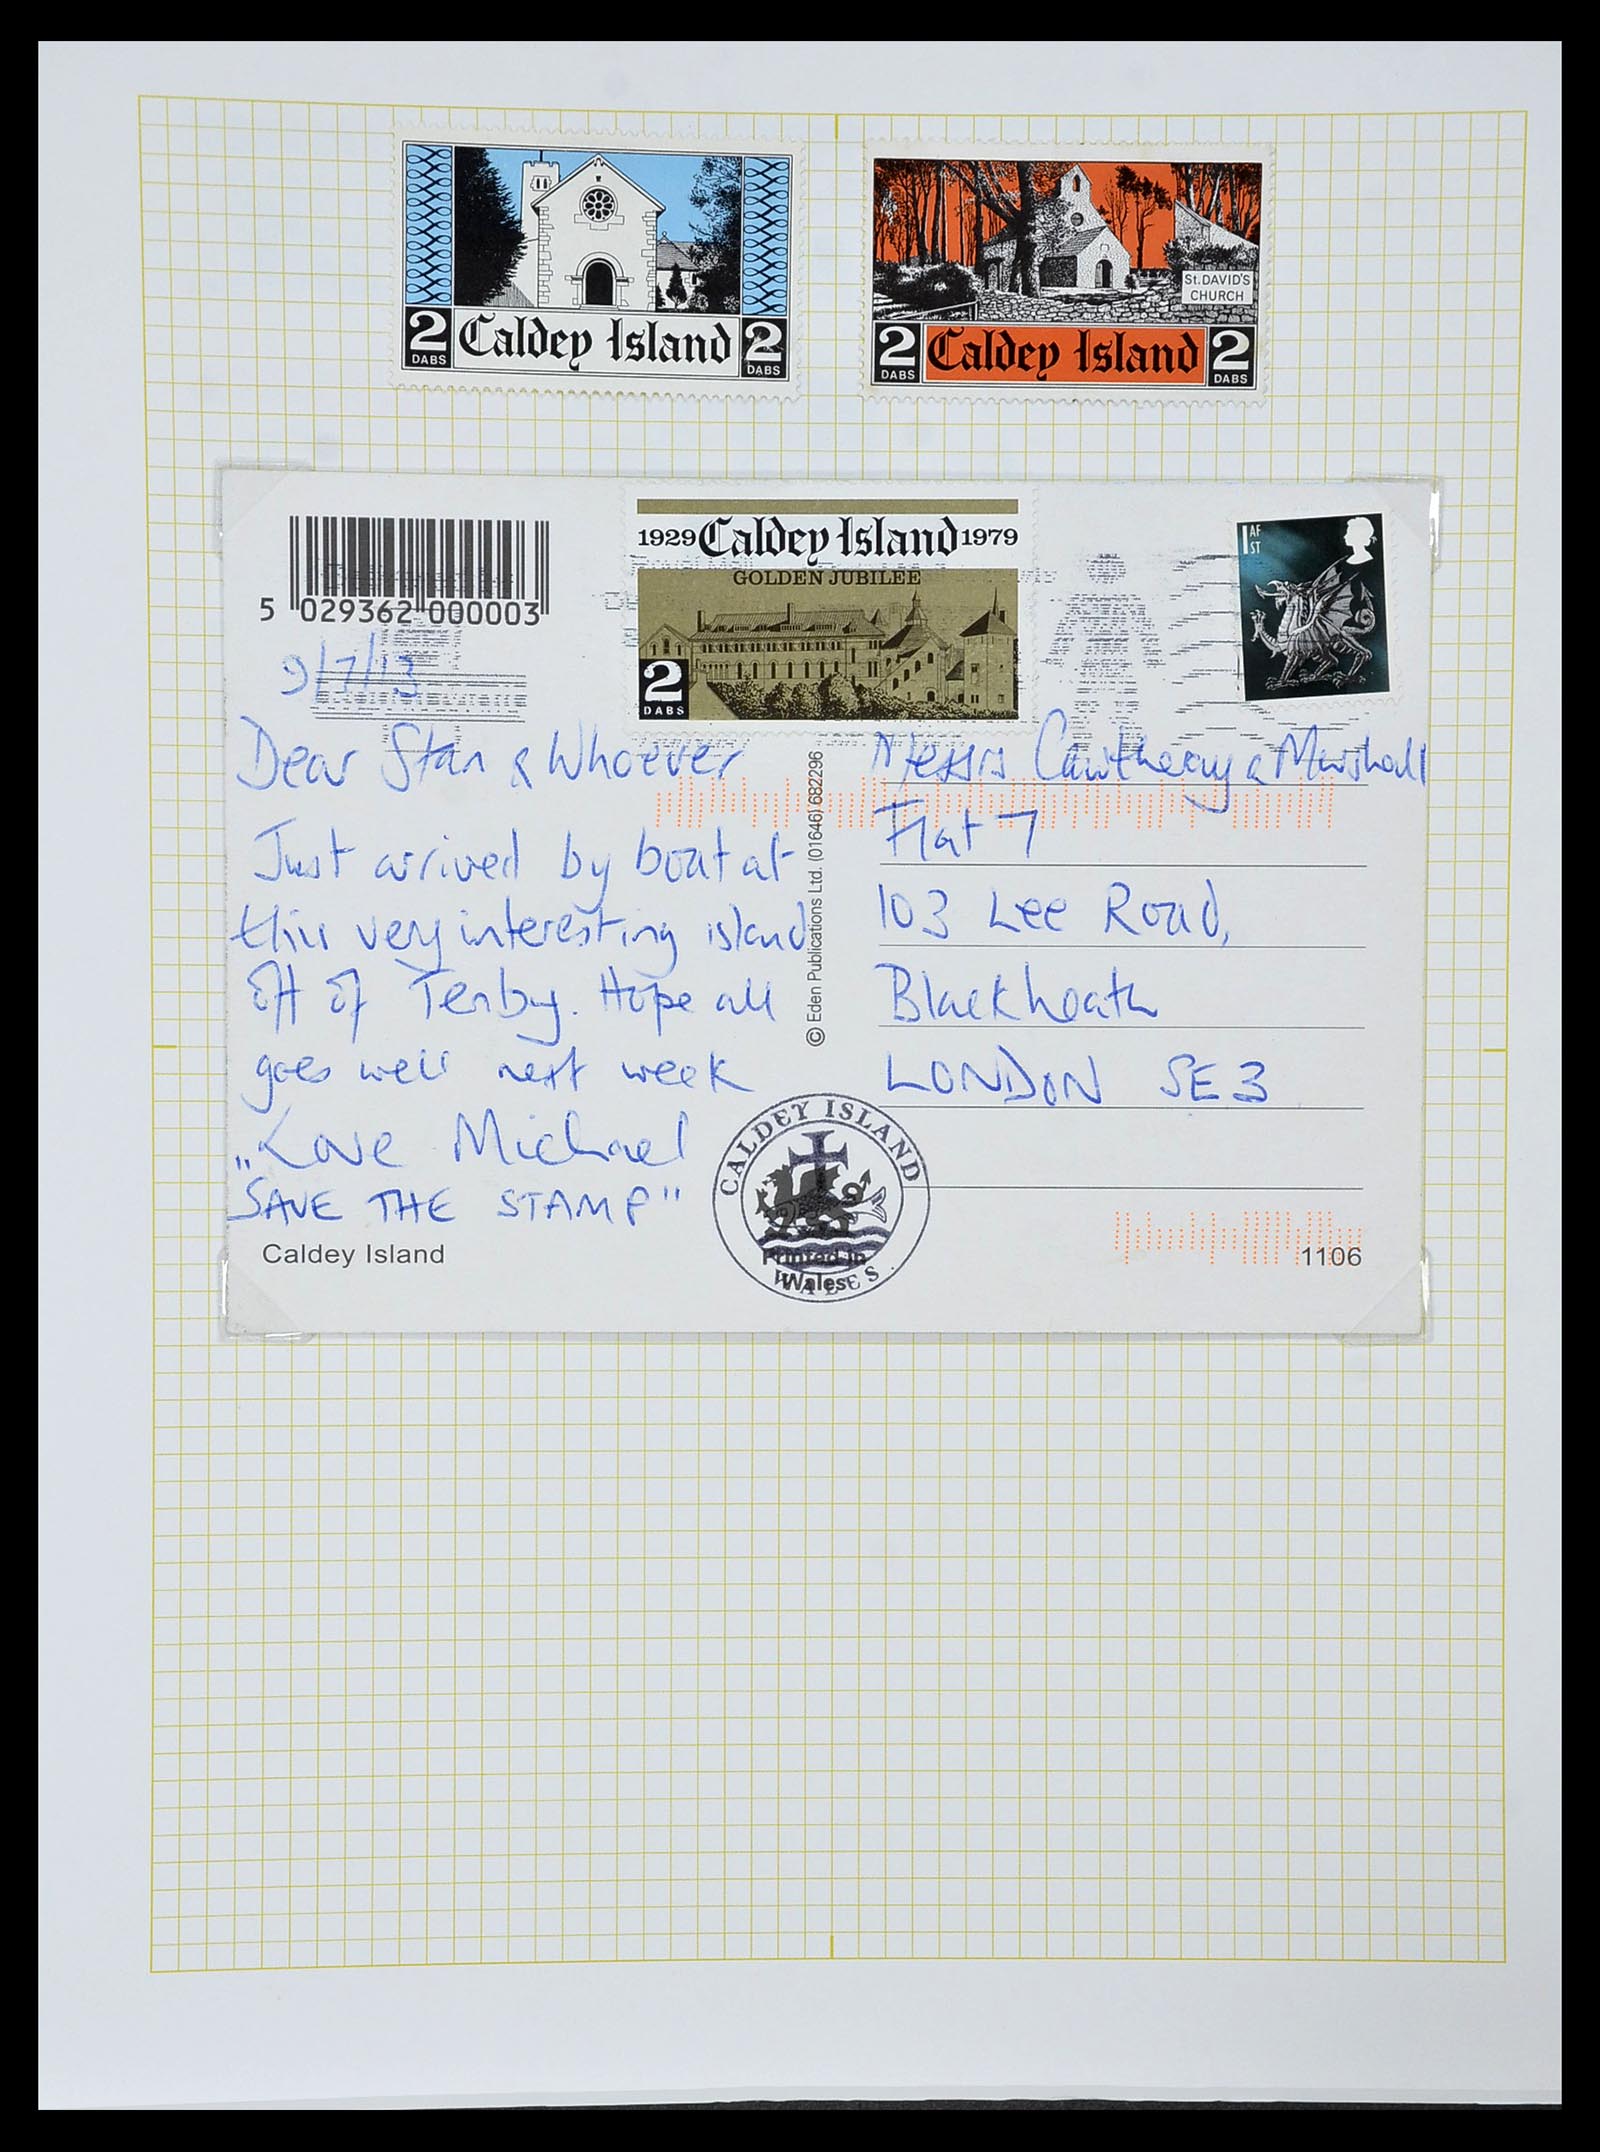 2 DABS Caldey Island 2 DABS
St. DAVID'S
CHURCH
2 DABS Caldey Island 2 DABS
1929 Caldey Island 1979
GOLDEN JUBILEE
2
DABS
1 AF
ST
5 029362 000003
9/7/13
Dear Stan & Whoever
Just arrived by boat at
this very interesting island
off of Tenby. Hope all
goes well next week
Love Michael
"SAVE THE STAMP"
Caldey Island
© Eden Publications Ltd. (01646) 682296
Messrs & Marshall
Flat 7
103 Lee Road,
Blackheath
LONDON SE3
CALDEY ISLAND
WALES
Printed in
Wales
1106